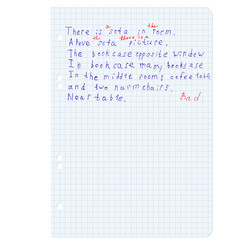 There is a sofa in the room.
Above the sofa there is a picture.
The bookcase opposite window
In bookcase many books are
In the middle rooms coffee table
and two narm chairs.
Near table. Bad